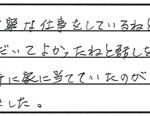 寧な仕事をしているねと
だいてよかったねと話しを
手に家に当てていたのが
した。